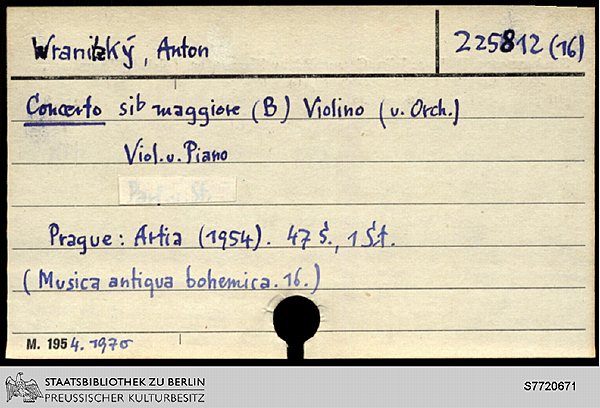 Wranitzký, Anton
225812 (16)
Concerto sib maggiore (B) Violino (u. Orch.)
Viol. u. Piano
Prague: Artia (1954). 47 S., 1 St.
(Musica antiqua bohemica. 16.)
M. 1954.1970
STAATSBIBLIOTHEK ZU BERLIN
PREUSSISCHER KULTURBESITZ
S7720671